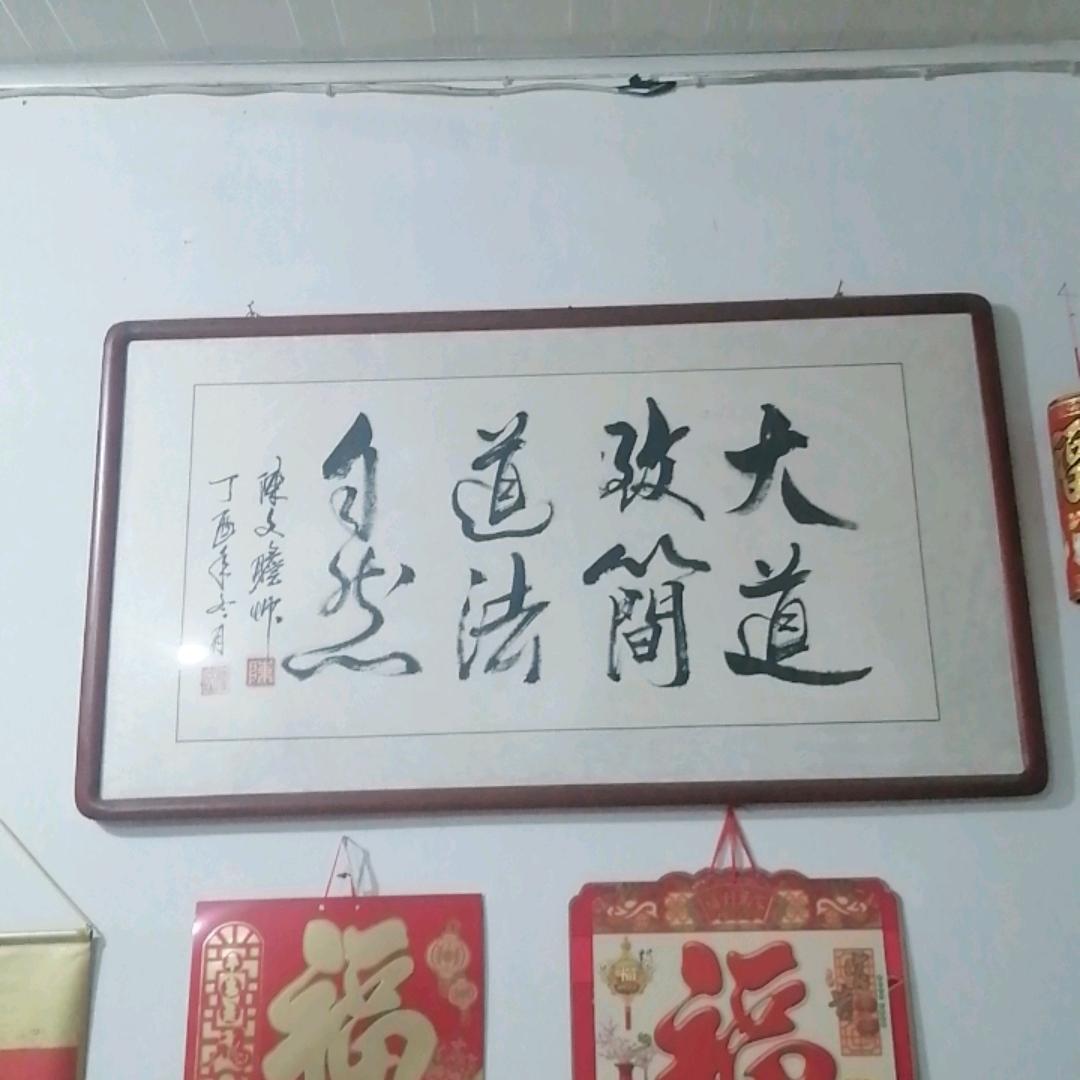 大道
致簡
道法
自然
陳文瞻帅
丁酉年冬月
陳
福
福